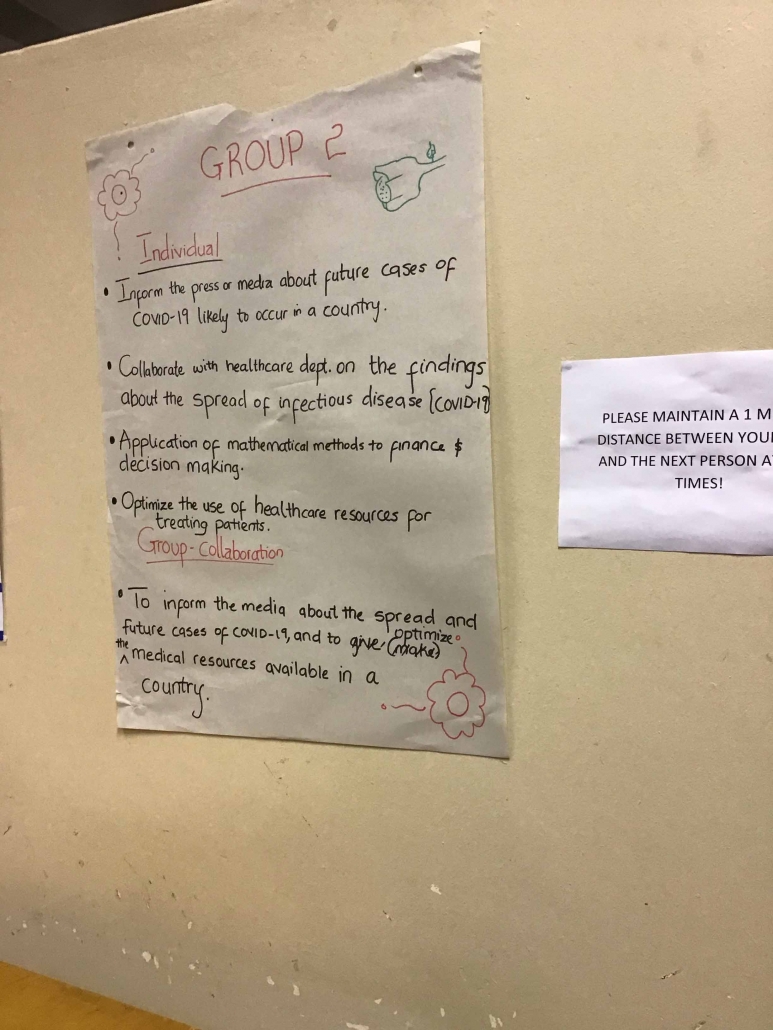 GROUP 2
Individual
• Inform the press or media about future cases of
COVID-19 likely to occur in a country.
• Collaborate with healthcare dept. on the findings
about the spread of infectious disease [COVID-19]
• Application of mathematical methods to finance &
decision making.
• Optimize the use of healthcare resources for
treating patients.
Group-Collaboration
• To inform the media about the spread and
future cases of COVID-19, and to give, (make) optimize
the medical resources available in a
country.
PLEASE MAINTAIN A 1 M
DISTANCE BETWEEN YOU
AND THE NEXT PERSON A
TIMES!